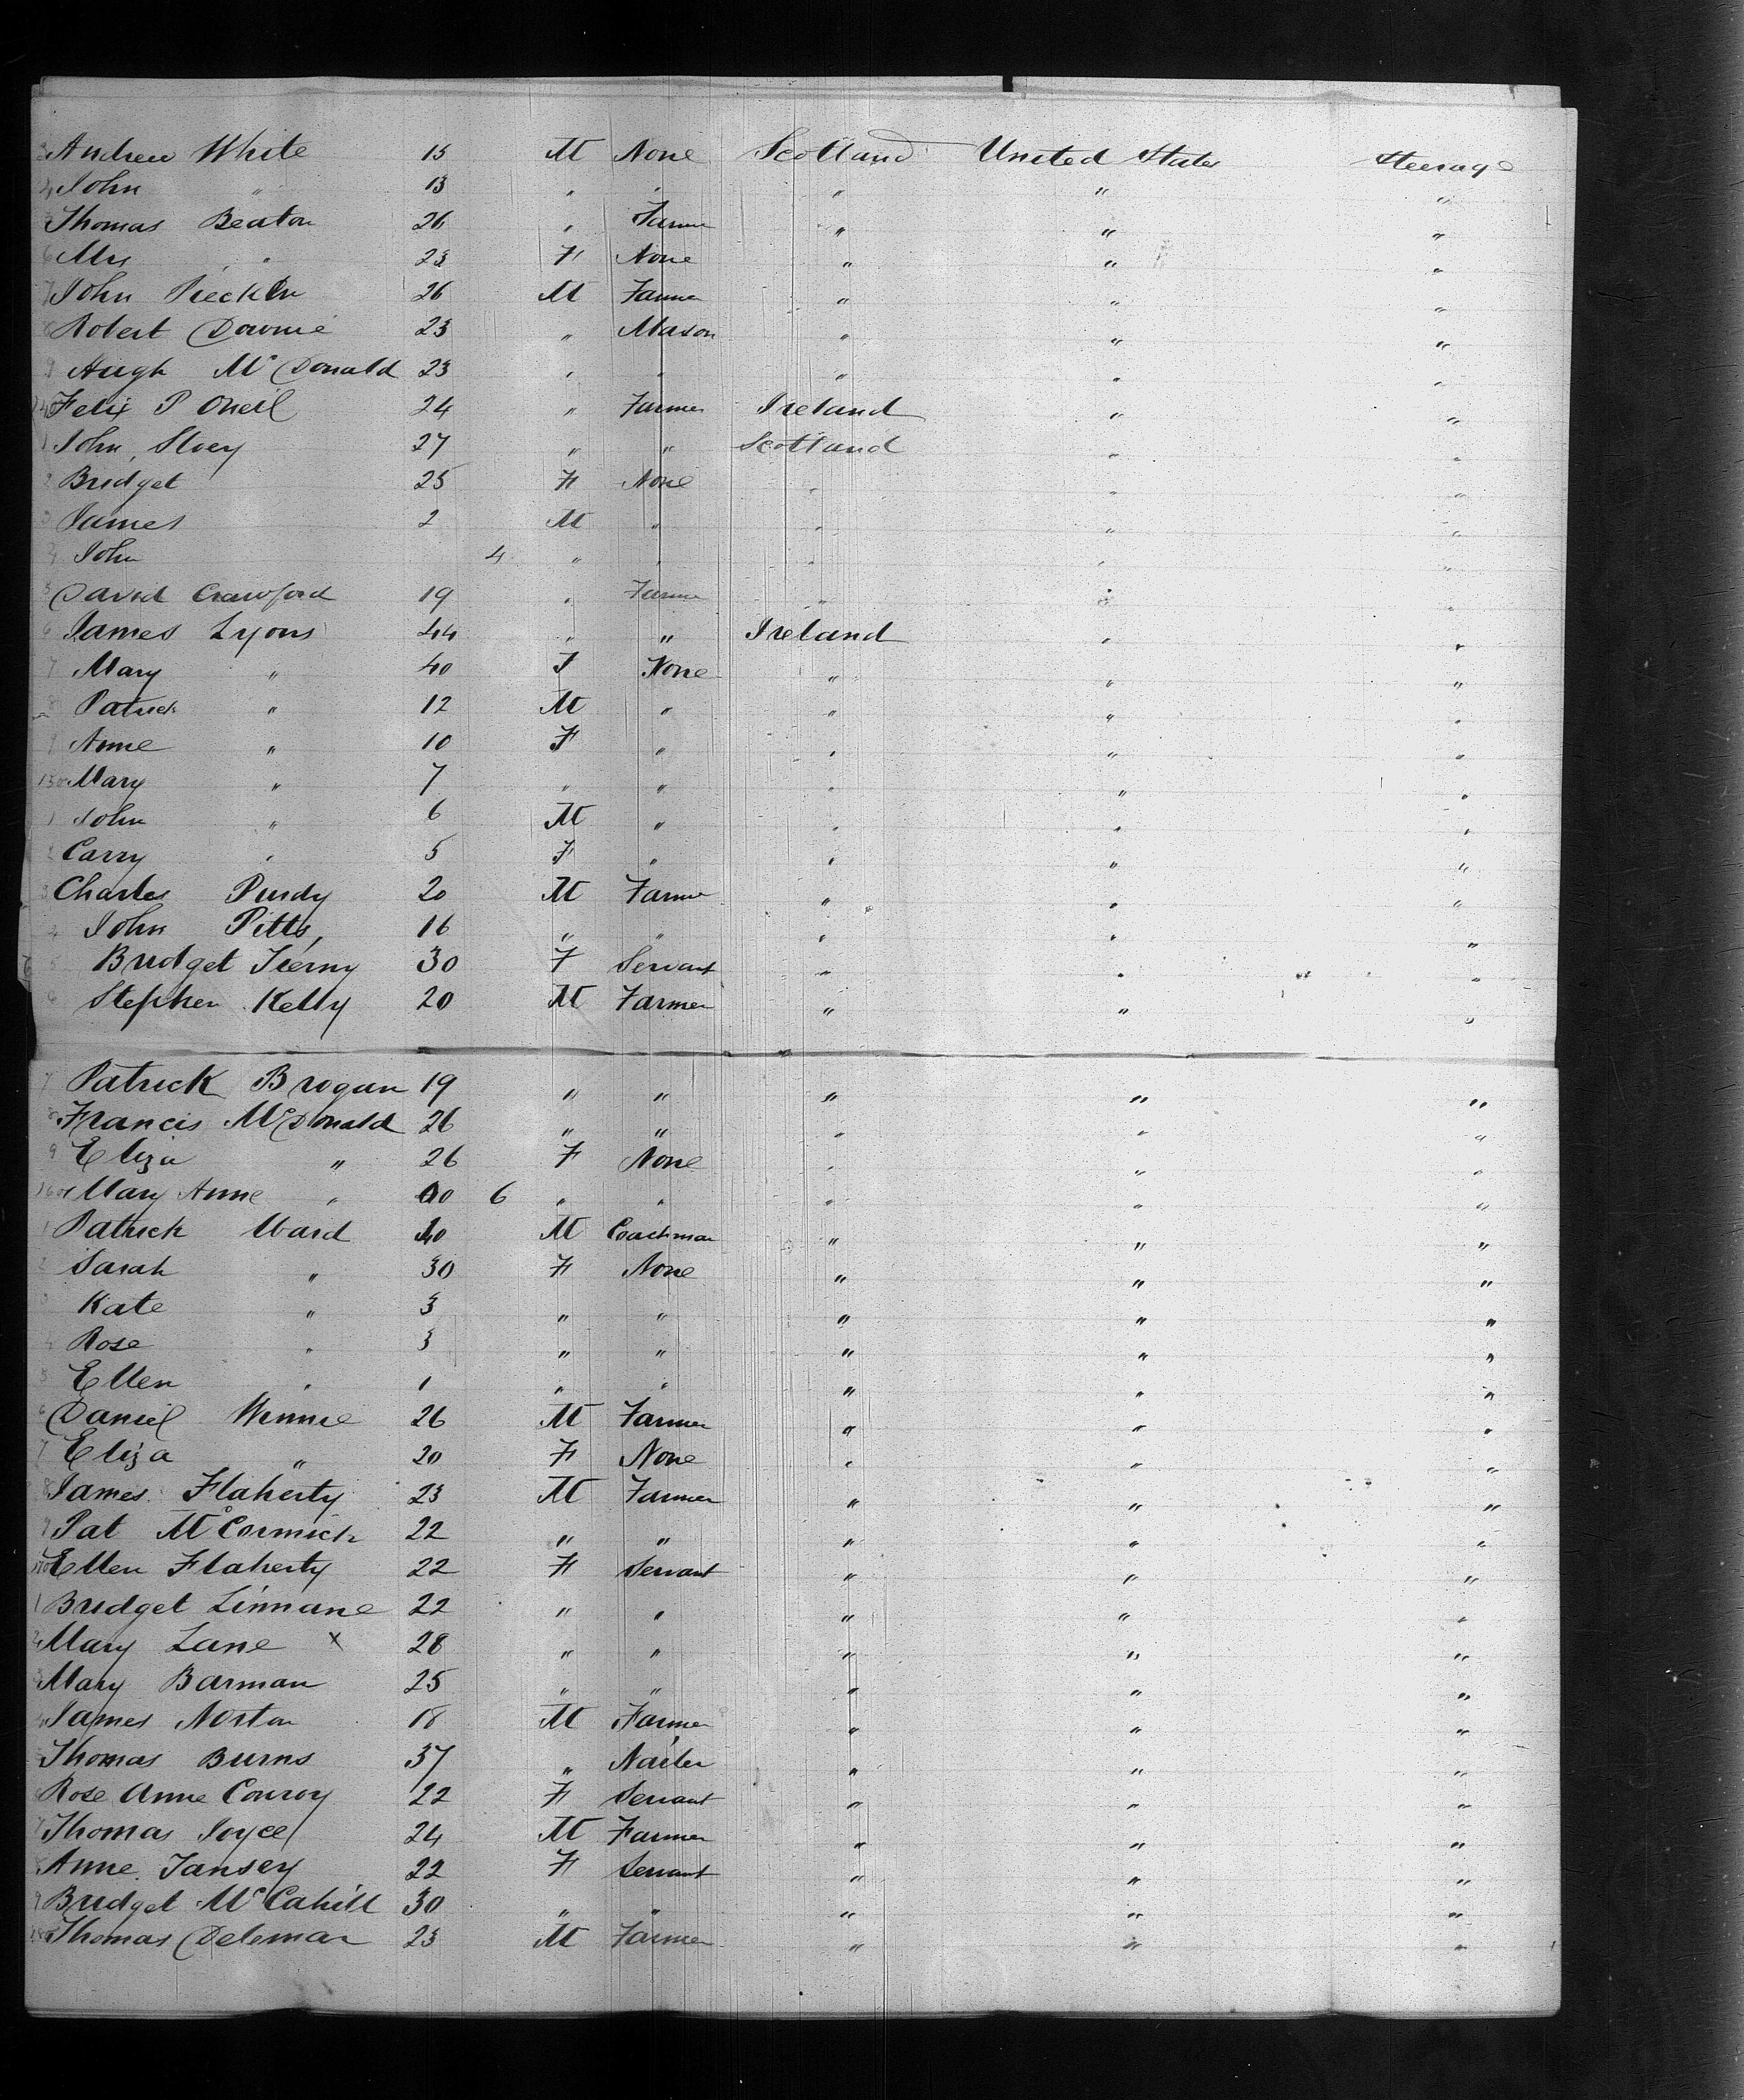 Andrew White 15 M None Scotland United States Steerage
4 John " 13 " " " " "
Thomas Beaton 26 " Farmer " " "
6 Mrs " 23 F None " " "
7 John 26 M Farmer " " "
8 Robert Downie 23 " Mason " " "
9 Hugh McDonald 23 " " " " "
Felix P Oneil 24 " Farmer Ireland " "
1 John 27 " " Scotland " "
2 Bridget 25 F None " " "
3 James 2 M " " " "
4 John 4 " " " " "
5 David Crawford 19 " Farmer " " "
6 James Lyons 44 " " Ireland " "
7 Mary " 40 F None " " "
8 Patrick " 12 M " " " "
9 Anne " 10 F " " " "
150 Mary " 7 " " " " "
1 John " 6 M " " " "
2 Carry " 5 F " " " "
3 Charles Purdy 20 M Farmer " " "
4 John Pitts 16 " " " " "
5 Bridget Tierny 30 F Servant " " "
6 Stephen Kelly 20 M Farmer " " "
7 Patrick Brogan 19 " " " " "
8 Francis McDonald 26 " " " " "
9 Eliza " 26 F None " " "
160 Mary Anne " 6 " " " " "
1 Patrick Ward 40 M Coachman " " "
2 Sarah " 30 F None " " "
3 Kate " 3 " " " " "
4 Rose " 3 " " " " "
5 Ellen " 1 " " " " "
6 Daniel Winnie 26 M Farmer " " "
7 Eliza " 20 F None " " "
8 James Flaherty 23 M Farmer " " "
9 Pat McCormick 22 " " " " "
170 Ellen Flaherty 22 F Servant " " "
1 Bridget Linnane 22 " " " " "
2 Mary Lane x 28 " " " " "
3 Mary Barman 25 " " " " "
4 James Norton 18 M Farmer " " "
Thomas Burns 37 " Nailer " " "
6 Rose Anne Conroy 22 F Servant " " "
7 Thomas Joyce 24 M Farmer " " "
8 Anne Tansey 22 F Servant " " "
9 Bridget McCahill 30 " " " " "
180 Thomas Delemar 23 M Farmer " " "